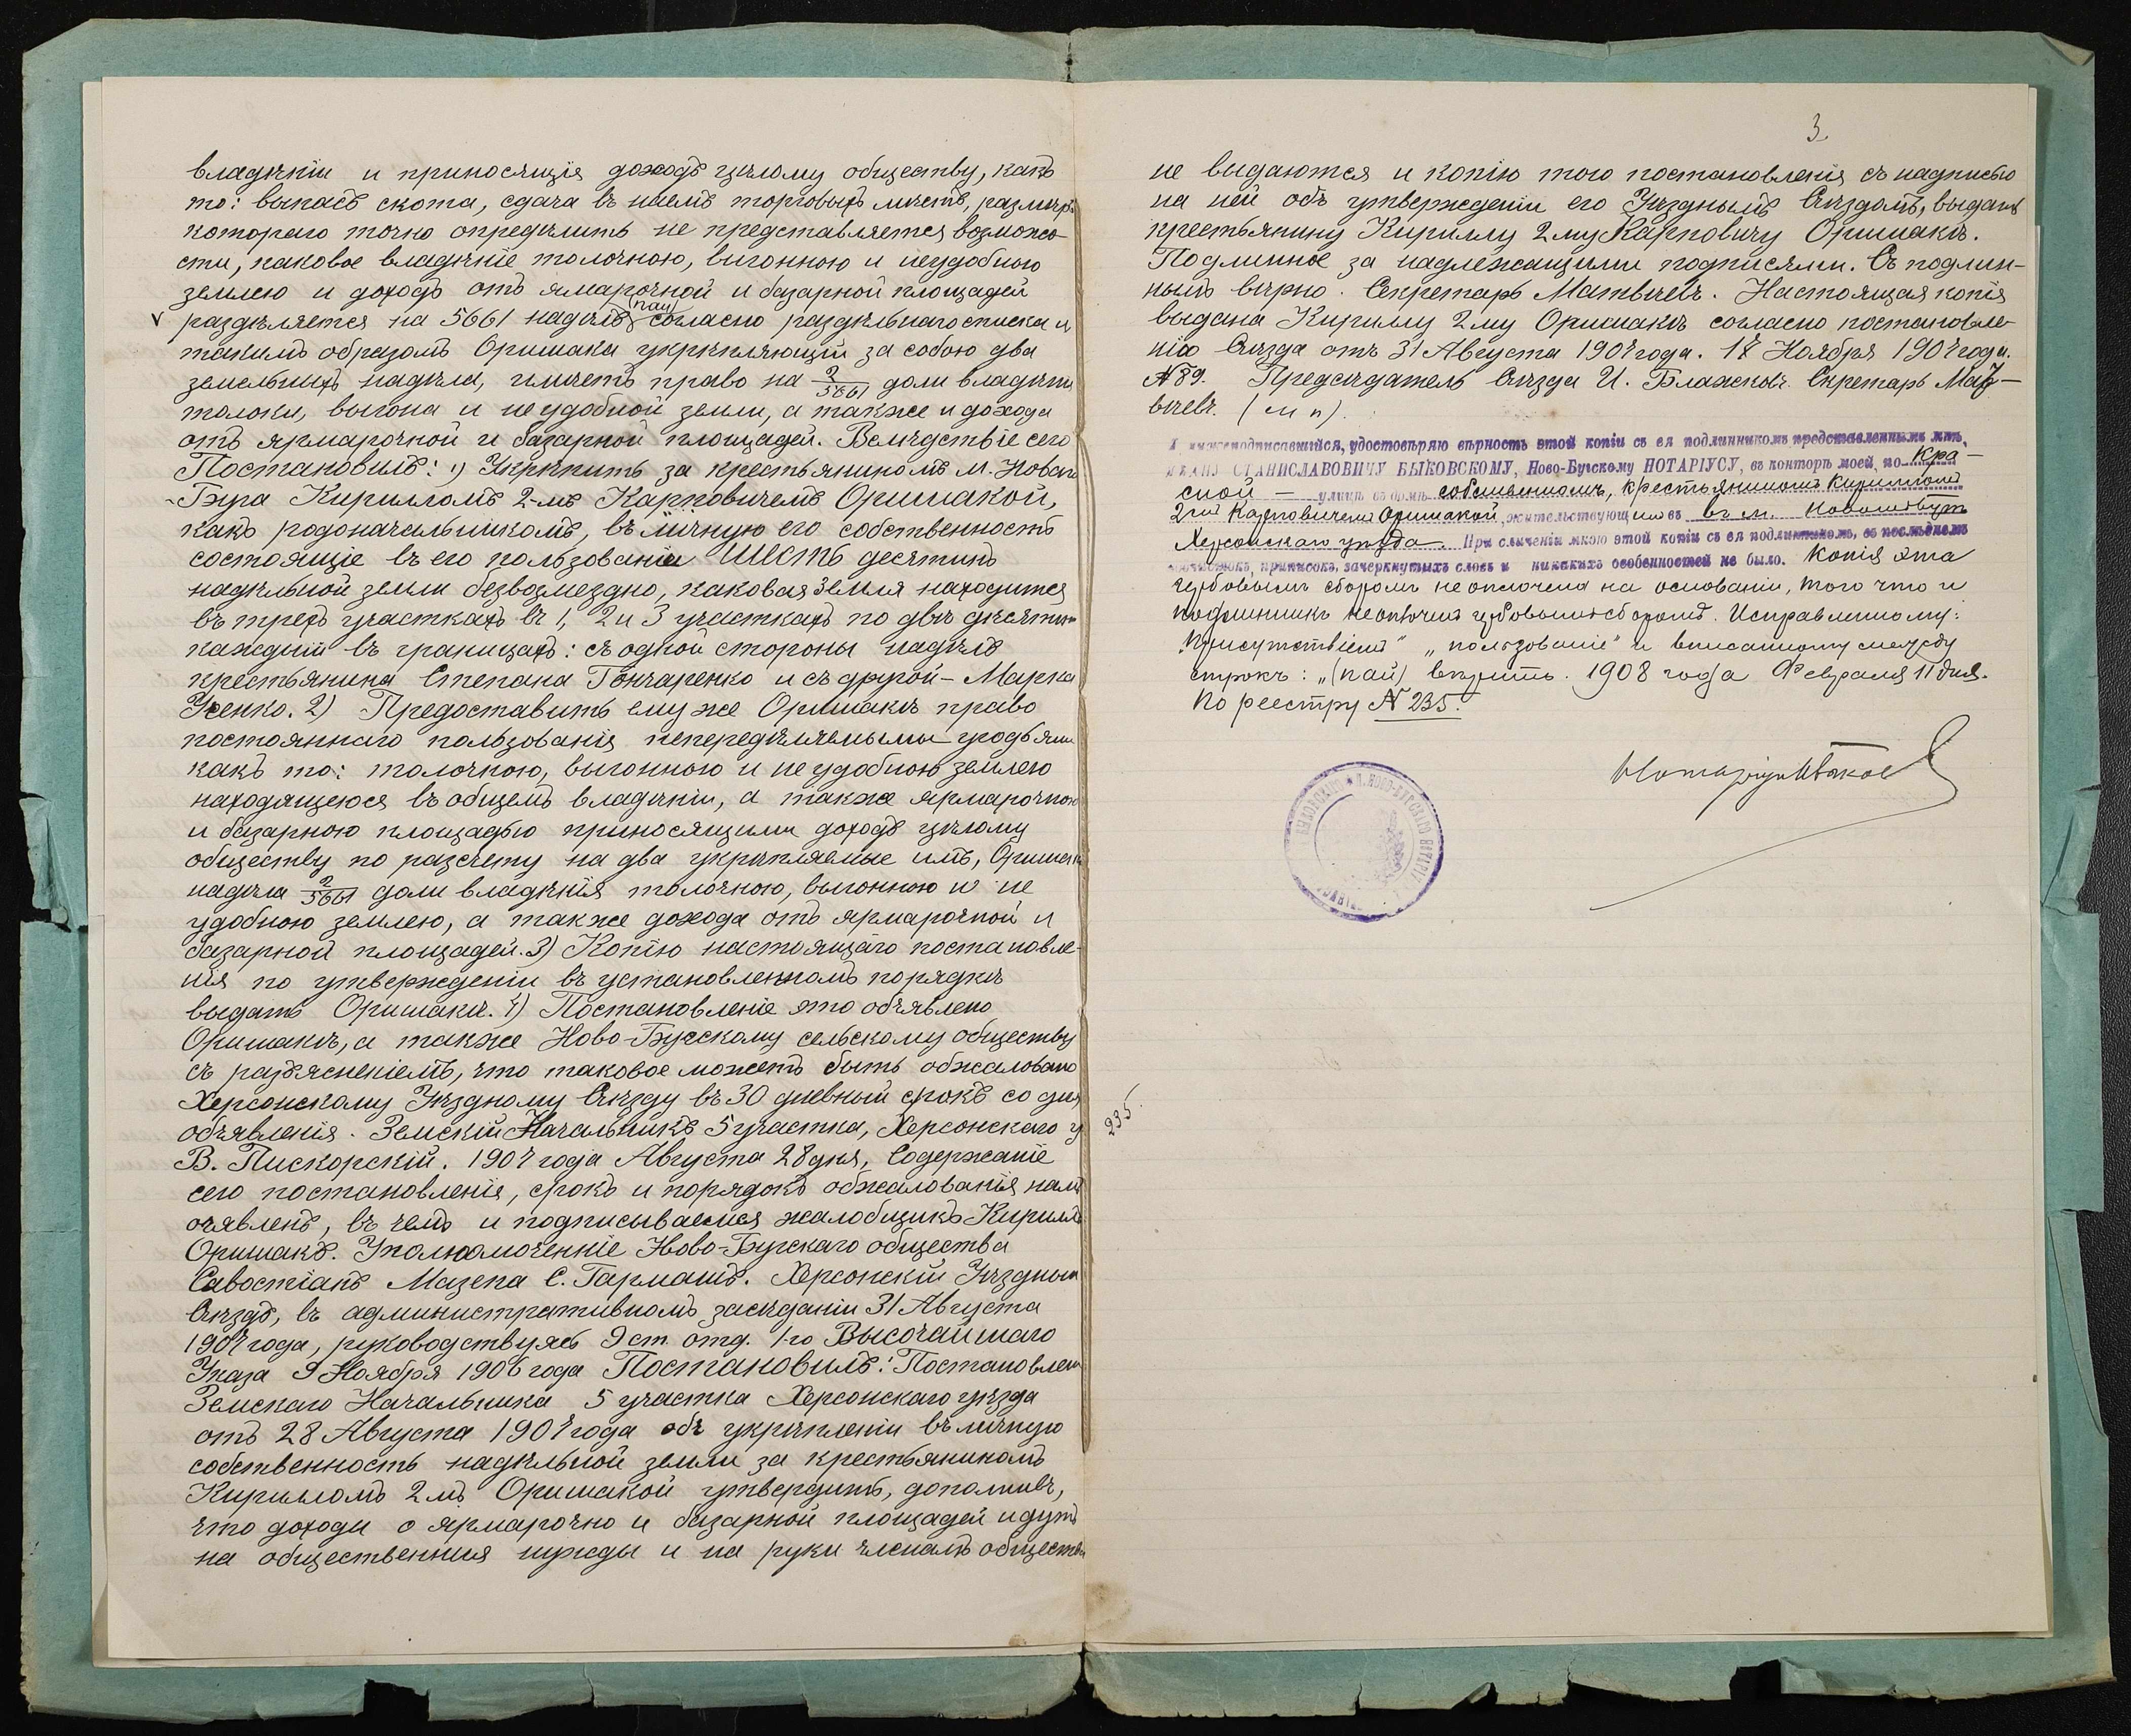 владѣніи и приносящія доходъ цѣлому обществу, какъ
то: выпасъ скота, сдача въ наемъ торговыхъ мѣстъ, размѣръ
котораго точно опредѣлить не представляется возможно-
сти, каковое владѣніе толочною, выгонною и неудобною
землею и доходъ отъ ярмарочной и базарной площадей
(пай)
раздѣляется на 5661 надѣлъ согласно раздѣльнаго списка и
такимъ образомъ Оришака укрѣпляющій за собою два
земельныхъ надѣла, имѣетъ право на 2/5661 доли владѣнія
толоки, выгона и неудобной земли, а также и дохода
отъ ярмарочной и базарной площадей. Вслѣдствіе сего
Постановилъ: 1) Укрѣпить за крестьяниномъ м. Новаго
Буга Кирилломъ 2-мъ Карповичемъ Оришакой,
какъ родоначальникомъ, въ личную его собственность
состоящіе въ его пользованіи шесть десятинъ
надѣльной земли безвозмездно, каковая земля находится
въ трехъ участкахъ въ 1, 2 и 3 участкахъ по двѣ десятины
каждый въ границахъ: съ одной стороны надѣлъ
крестьянина Степана Гончаренко и съ другой - Марка
Усенко. 2) Предоставить ему же Оришакѣ право
постояннаго пользованія непередѣляемыми угодьями
какъ то: толочною, выгонною и неудобною землею
находящеюся въ общемъ владѣніи, а также ярмарочною
и базарною площадью приносящими доходъ цѣлому
обществу по разсчету на два укрѣпляемые имъ, Оришакой
надѣла 2/5661 доли владѣнія толочною, выгонною и не
удобною землею, а также дохода отъ ярмарочной и
базарной площадей. 3) Копію настоящаго постановле-
нія по утвержденіи въ установленномъ порядкѣ
выдать Оришакѣ. 4) Постановленіе это объявлено
Оришакѣ, а также Ново-Бугскому сельскому обществу
съ разъясненіемъ, что таковое можетъ быть обжаловано
Херсонскому Уѣздному Съѣзду въ 30 дневный срокъ со дня
объявленія. Земскій Начальникъ 5 участка, Херсонскаго у
В. Пискорскій. 1907 года Августа 28 дня, Содержаніе
сего постановленія, срокъ и порядокъ обжалованія намъ
оъявленъ, въ чемъ и подписываемся жалобщикъ Кириллъ
Оришакъ. Уполномоченніе Ново-Бугскаго общества
Савостіанъ Мазепа С. Гармашъ. Херсонскій Уѣздный
Съѣздъ, въ административномъ засѣданіи 31 Августа
1907 года, руководствуясь 9 ст. отд. 1-го Высочайшаго
Указа 9 Ноября 1906 года Постановилъ: Постановлен
Земскаго Начальника 5 участка Херсонскаго уѣзда
отъ 28 Августа 1907 года объ укрѣпленіи въ личную
собственность надѣльной земли за крестьяниномъ
Кирилломъ 2мъ Оришакой утвердить, дополнивъ,
что доходи о ярмарочно и базарной площадей идутъ
на общественныя нужды и на руки членамъ общества
3
не выдаются и копію того постановленія съ надписью
на ней объ утвержденіи его Уѣзднымъ Съѣздомъ, выдать
крестьянину Кириллу 2му Карповичу Оришакѣ.
Подлинное за надлежащими подписями. Съ подлин-
нымъ вѣрно. Секретарь Матвѣевъ. Настоящая копія
выдана Кириллу 2му Оришакѣ согласно постановле-
нію Съѣзда отъ 31 Августа 1907 года. 17 Ноября 1907 года.
№ 89. Предсѣдатель Съѣзда И. Блажковъ. Скретарь Мат-
вѣевъ. (м п).
Я нижеподписавшийся, удостовѣряю вѣрность этой копіи съ ея подлинникомъ представленнымъ мнѣ,
ИВАНУ СТАНИСЛАВОВИЧУ БЫКОВСКОМУ, Ново-Бугскому НОТАРІУСУ, въ конторѣ моей, по Кра-
сной - улицѣ въ домѣ собственномъ, крестьяниномъ Кирилломъ
2мъ Карповичемъ Оришакой, жительствующимъ въ м. Новомъ-Бугѣ
Херсонскаго уѣзда. При сличеніи мною этой копіи съ ея подлинникомъ, въ послѣднемъ
подчистокъ, приписокъ, зачеркнутыхъ словъ и никакихъ особенностей не было. Копія эта
гербовымъ сборомъ не оплочена на основаніи, того что и
подлинникъ неоплоченъ гербовымъ сборомъ. Исправленному:
"присутствіемъ" "пользованіе" и вписанному между
строкъ: "(пай) вѣрить. 1908 года Февраля 11 дня.
По реестру № 235.
Нотаріусъ
235.